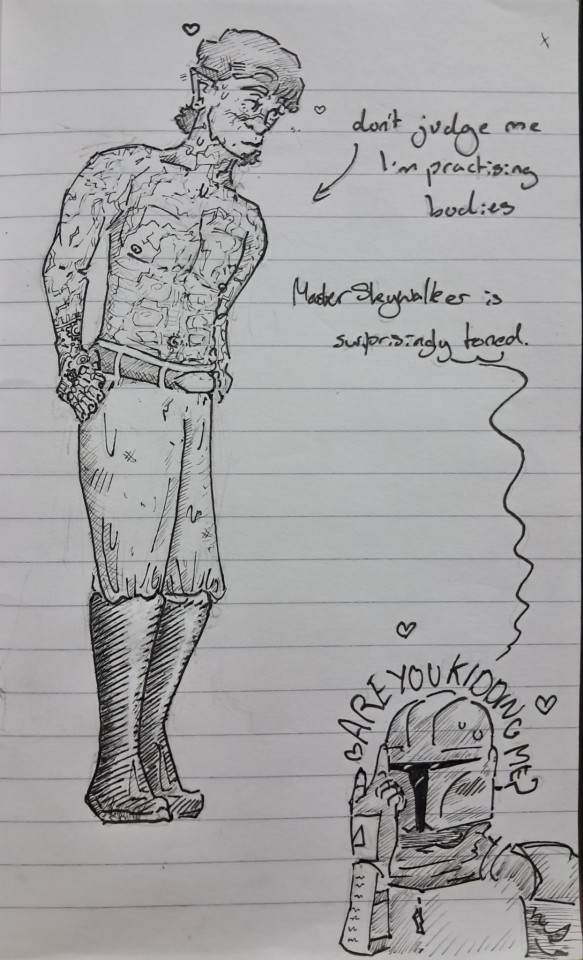 don't judge me
I'm practising
bodies
Master Skywalker is
surprisingly toned.
ARE YOU KIDDING ME?